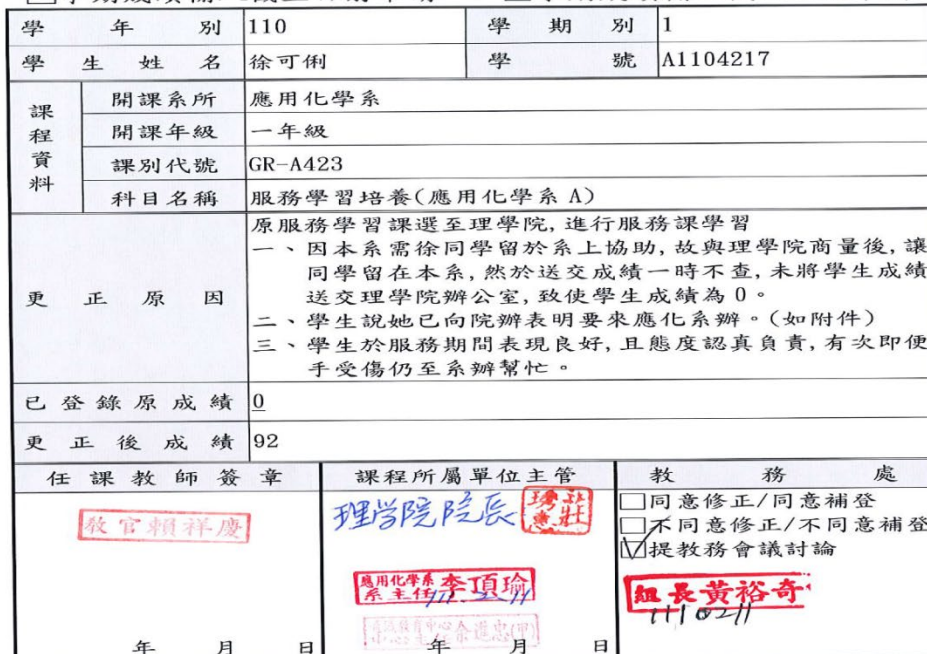 學年別 110 學期別 1
學生姓名 徐可俐 學號 A1104217
課程資料
開課系所 應用化學系
開課年級 一年級
課別代號 GR-A423
科目名稱 服務學習培養(應用化學系 A)
更正原因
原服務學習課選至理學院,進行服務課學習
一、因本系需徐同學留於系上協助,故與理學院商量後,讓
同學留在本系,然於送交成績一時不查,未將學生成績
送交理學院辦公室,致使學生成績為 0。
二、學生說她已向院辦表明要來應化系辦。(如附件)
三、學生於服務期間表現良好,且態度認真負責,有次即便
手受傷仍至系辦幫忙。
已登錄原成績 0
更正後成績 92
任課教師簽章 課程所屬單位主管 教務處
□同意修正/同意補登
□不同意修正/不同意補登
☑提教務會議討論
教官賴祥慶
理学院院長
應用化學系系主任 李頂瑜
組長黃裕奇
1110211
年 月 日 年 月 日